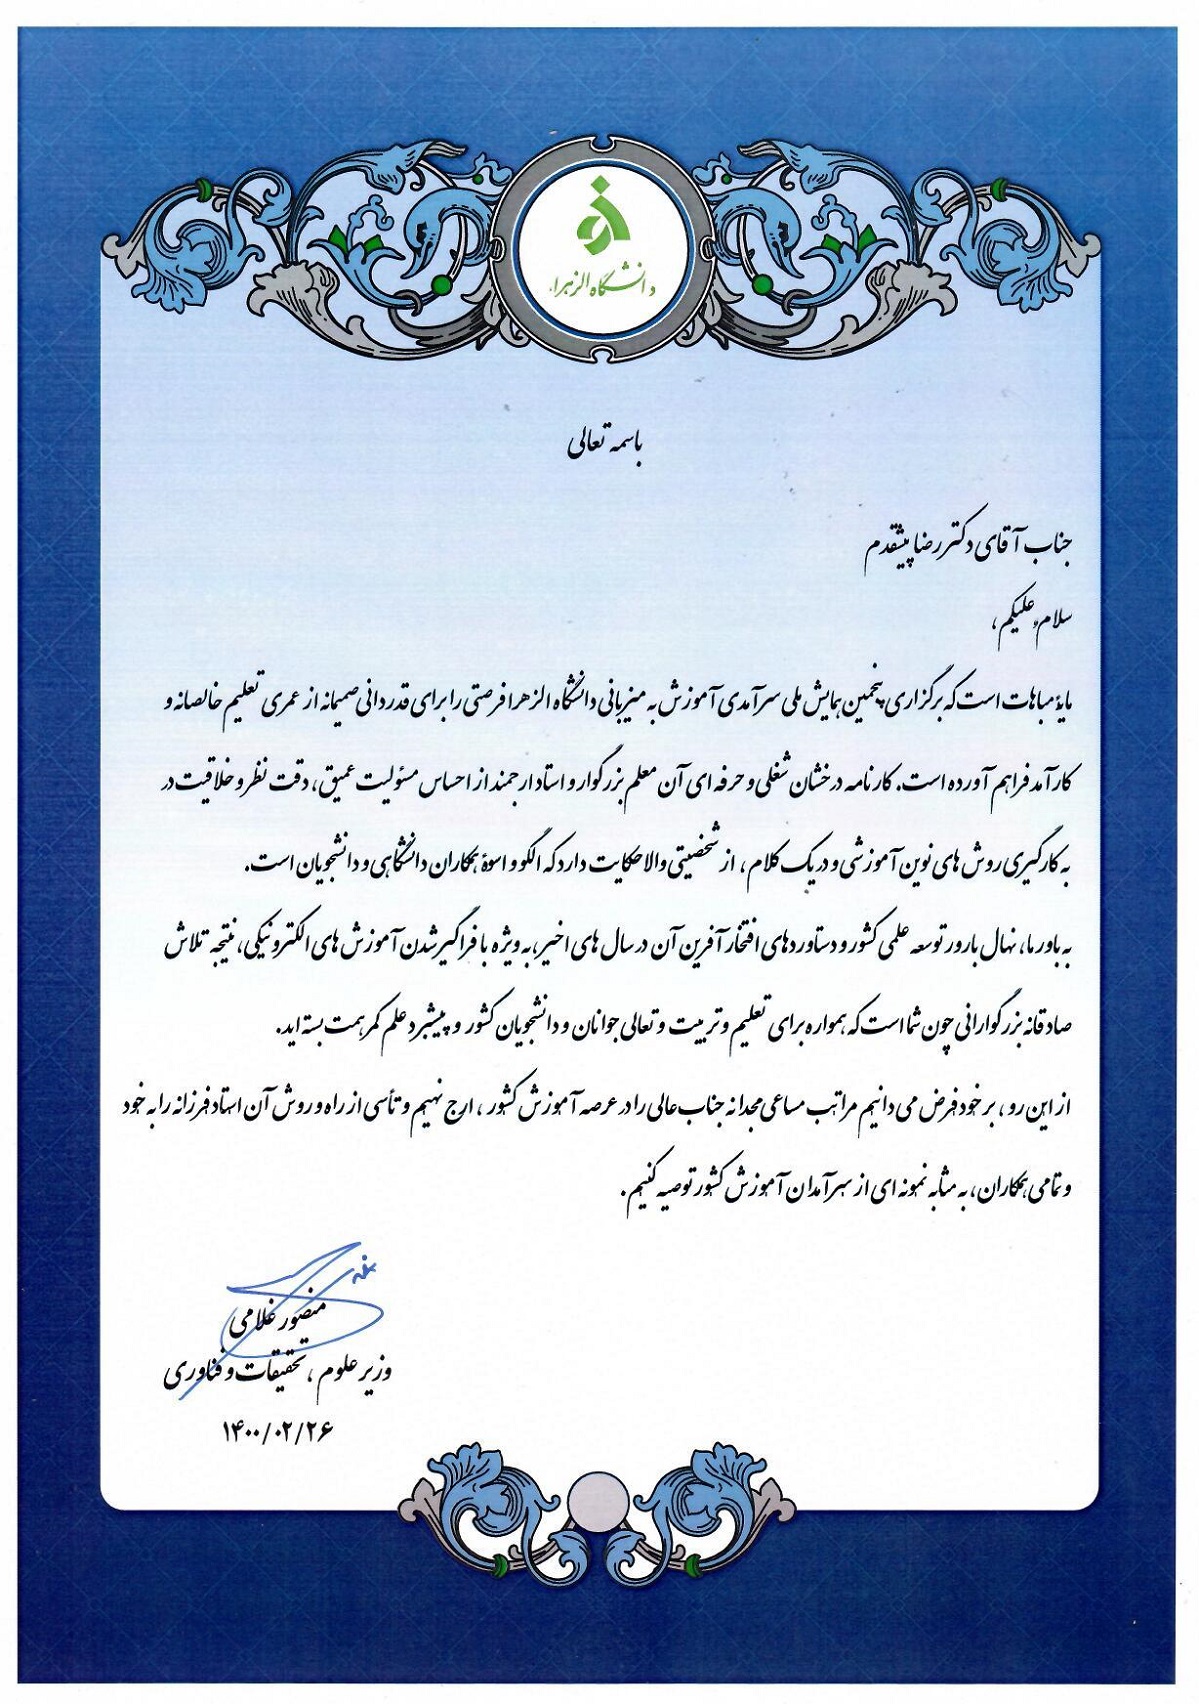 دانشگاه الزهراء
باسمه تعالی
جناب آقای دکتر رضا پیشقدم
سلام علیکم،
مایۀ مباهات است که برگزاری پنجمین همایش ملی سرآمدی آموزش به میزبانی دانشگاه الزهرا فرصتی را برای قدردانی صمیمانه از عمری تعلیم خالصانه و
کارآمد فراهم آورده است. کارنامه درخشان شغلی و حرفه ای آن معلم بزرگوار و استاد ارجمند از احساس مسئولیت عمیق، دقت نظر و خلاقیت در
به کارگیری روش های نوین آموزشی و در یک کلام، از شخصیتی والا حکایت دارد که الگو و اسوۀ همکاران دانشگاهی و دانشجویان است.
به باور ما، نهال بارور توسعه علمی کشور و دستاوردهای افتخارآفرین آن در سال های اخیر، به ویژه با فراگیر شدن آموزش های الکترونیکی، نتیجه تلاش
صادقانه بزرگوارانی چون شما است که همواره برای تعلیم و تربیت و تعالی جوانان و دانشجویان کشور و پیشبرد علم کمر همت بسته اید.
از این رو، بر خود فرض می دانیم مراتب مساعی مجدانه جناب عالی را در عرصه آموزش کشور، ارج نهیم و تأسی از راه و روش آن استاد فرزانه را به خود
و تمامی همکاران، به مثابه نمونه ای از سرآمدان آموزش کشور توصیه کنیم.
منصور غلامی
وزیر علوم، تحقیقات و فناوری
۱۴۰۰/۰۲/۲۶